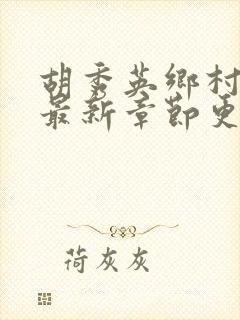 胡秀英鄉村
最新章節更
荷灰灰